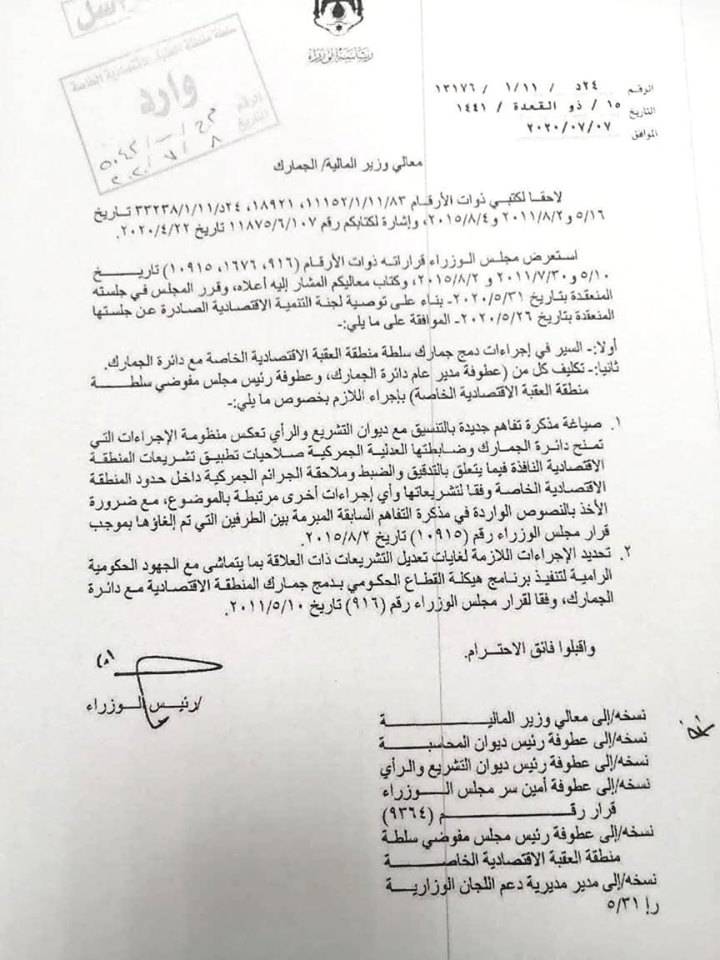 رئاسة الوزراء
سلطة منطقة العقبة الاقتصادية الخاصة
وارد
الرقم
التاريخ
الرقم ٢٤د / ١/١١ / ١٣١٧٦
التاريخ ١٥ / ذو القعدة / ١٤٤١
الموافق ٢٠٢٠/٠٧/٠٧
معالي وزير المالية/ الجمارك
لاحقا لكتبي ذوات الأرقام ١١١٥٢/١/١١/٨٣، ١٨٩٢١، ٢٤د/٣٣٢٣٨/١/١١ تاريخ
٥/١٦ و٢٠١١/٨/٢ و٢٠١٥/٨/٤، وإشارة لكتابكم رقم ١١٨٧٥/٦/١٠٧ تاريخ ٢٠٢٠/٤/٢٢.
استعرض مجلس الوزراء قراراته ذوات الأرقام (٩١٦، ١٦٧٦، ١٠٩١٥) تاريخ
٥/١٠ و٢٠١١/٧/٣٠ و٢٠١٥/٨/٢، وكتاب معاليكم المشار إليه أعلاه، وقرر المجلس في جلسته
المنعقدة بتاريخ ٢٠٢٠/٥/٣١- بناء على توصية لجنة التنمية الاقتصادية الصادرة عن جلستها
المنعقدة بتاريخ ٢٠٢٠/٥/٢٦- الموافقة على ما يلي:-
أولا:- السير في إجراءات دمج جمارك سلطة منطقة العقبة الاقتصادية الخاصة مع دائرة الجمارك.
ثانيا:- تكليف كل من (عطوفة مدير عام دائرة الجمارك، وعطوفة رئيس مجلس مفوضي سلطة
منطقة العقبة الاقتصادية الخاصة) بإجراء اللازم بخصوص ما يلي:-
١. صياغة مذكرة تفاهم جديدة بالتنسيق مع ديوان التشريع والرأي تعكس منظومة الإجراءات التي
تمنح دائرة الجمارك وضابطتها العدلية الجمركية صلاحيات تطبيق تشريعات المنطقة
الاقتصادية النافذة فيما يتعلق بالتدقيق والضبط وملاحقة الجرائم الجمركية داخل حدود المنطقة
الاقتصادية الخاصة وفقا لتشريعاتها وأي إجراءات أخرى مرتبطة بالموضوع، مع ضرورة
الأخذ بالنصوص الواردة في مذكرة التفاهم السابقة المبرمة بين الطرفين التي تم إلغاؤها بموجب
قرار مجلس الوزراء رقم (١٠٩١٥) تاريخ ٢٠١٥/٨/٢.
٢. تحديد الإجراءات اللازمة لغايات تعديل التشريعات ذات العلاقة بما يتماشى مع الجهود الحكومية
الرامية لتنفيذ برنامج هيكلة القطاع الحكومي بدمج جمارك المنطقة الاقتصادية مع دائرة
الجمارك، وفقا لقرار مجلس الوزراء رقم (٩١٦) تاريخ ٢٠١١/٥/١٠.
واقبلوا فائق الاحترام.
/رئيس الوزراء
نسخه/إلى معالي وزير المالية
نسخه/إلى عطوفة رئيس ديوان المحاسبة
نسخه/إلى عطوفة رئيس ديوان التشريع والرأي
نسخه/إلى عطوفة أمين سر مجلس الوزراء
قرار رقم (٩٣٦٤)
نسخه/إلى عطوفة رئيس مجلس مفوضي سلطة
منطقة العقبة الاقتصادية الخاصة
نسخه/إلى مدير مديرية دعم اللجان الوزارية
ر إ ٥/٣١